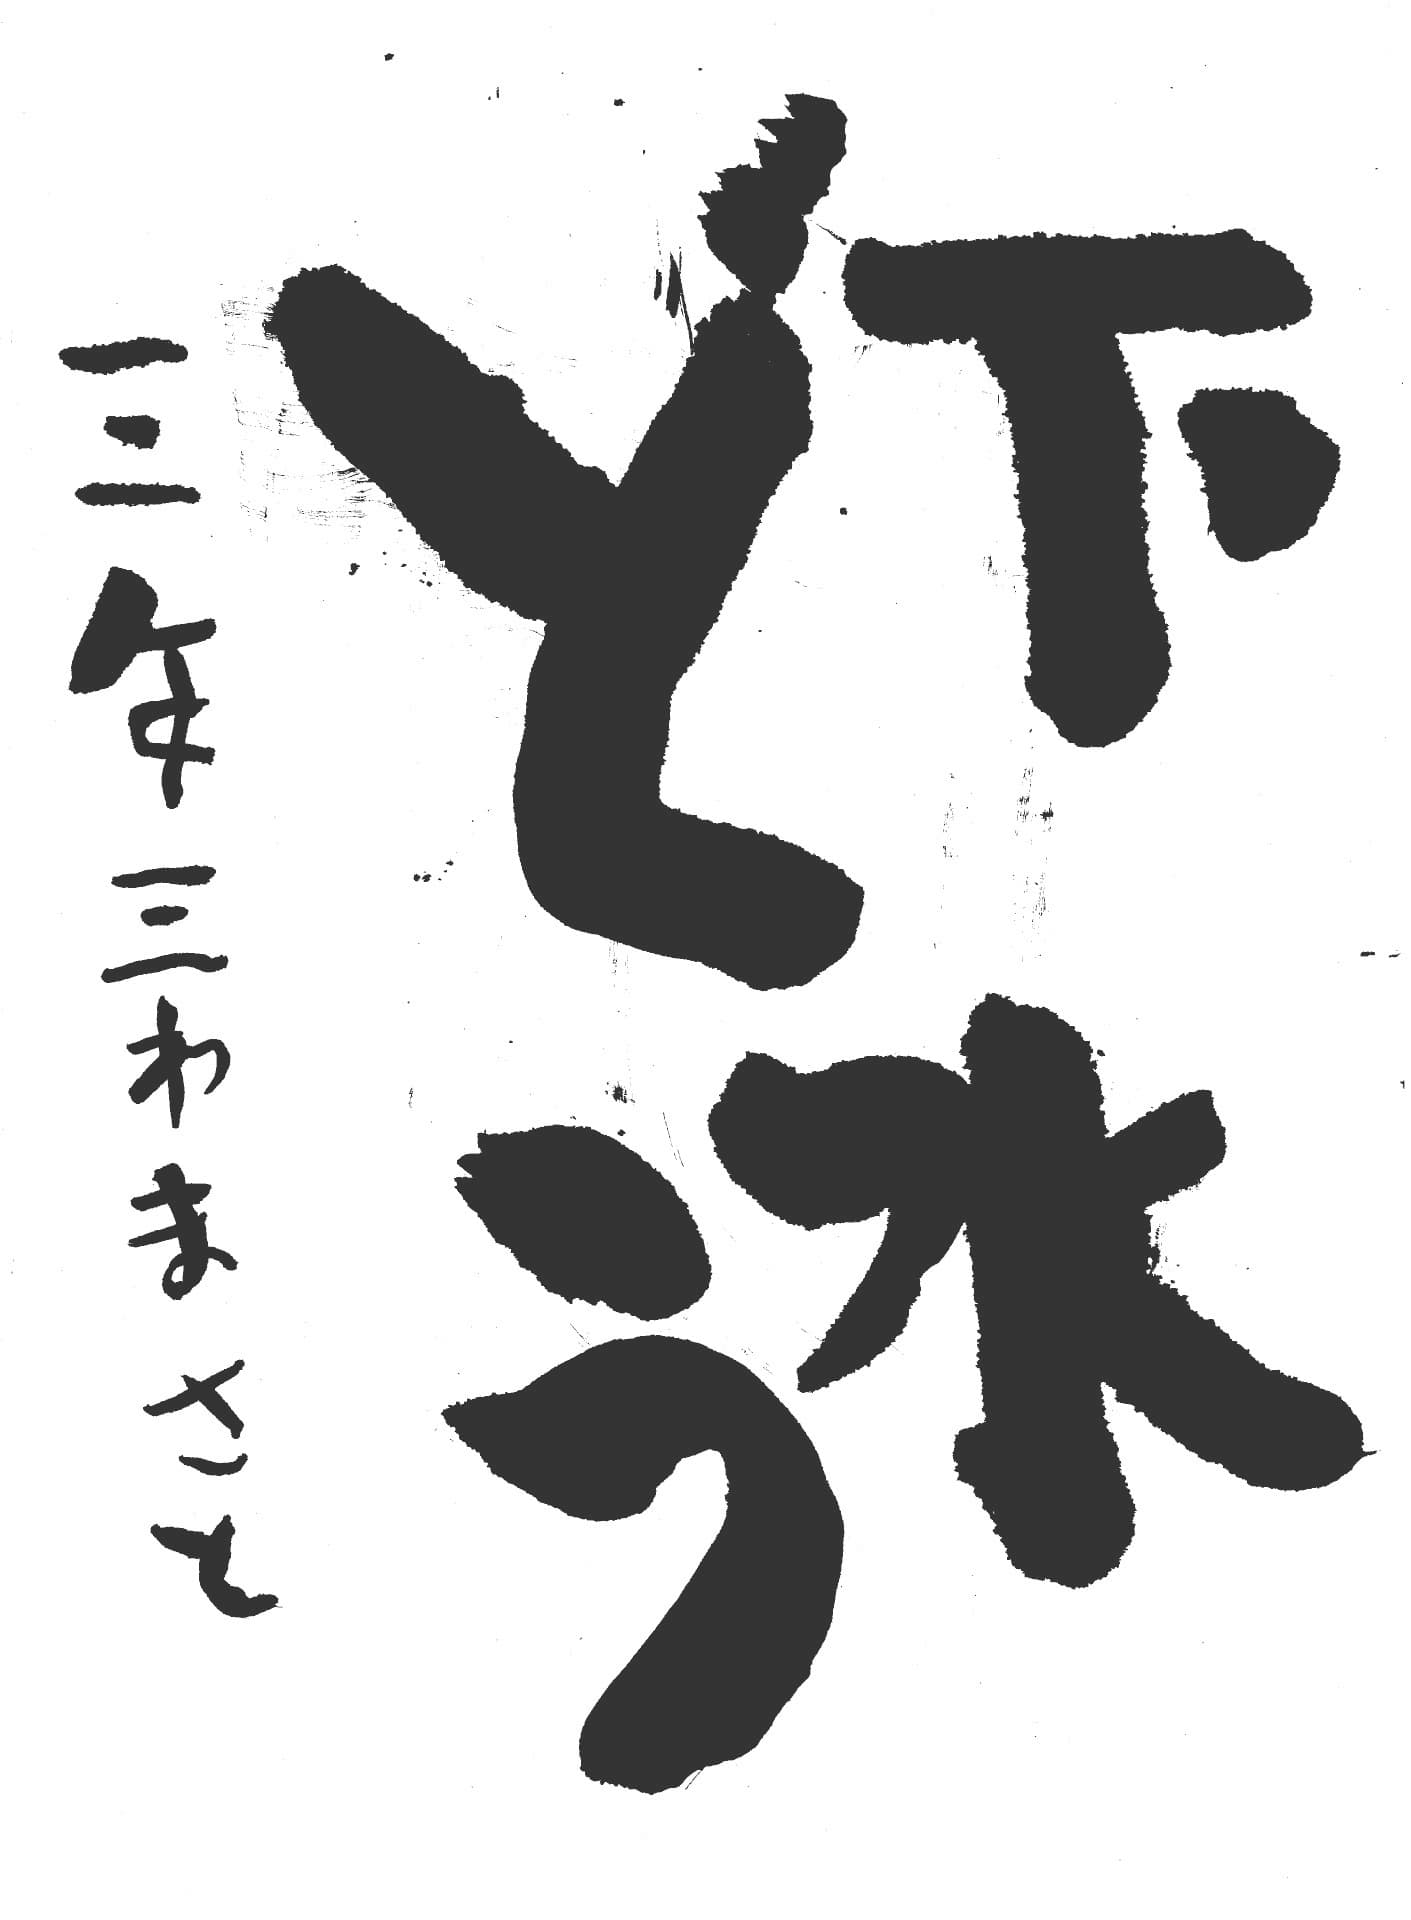 下水
とう
三年 三わ まさと